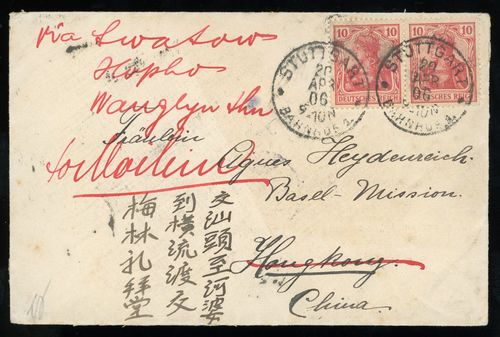 10
10
DEUTSCHES REICH
DEUTSCHES REICH
STUTTGART
20
APR
06
9-10N
BAHNHOF 2.
STUTTGART
20
APR
06
9-10N
BAHNHOF 2.
via Swatow
Hopho
Fräulein
to Moilim
Agnes Heydenreich.
Basel-Mission.
Hongkong.
China.
交汕頭至河婆
到橫流渡交
梅林礼拜堂